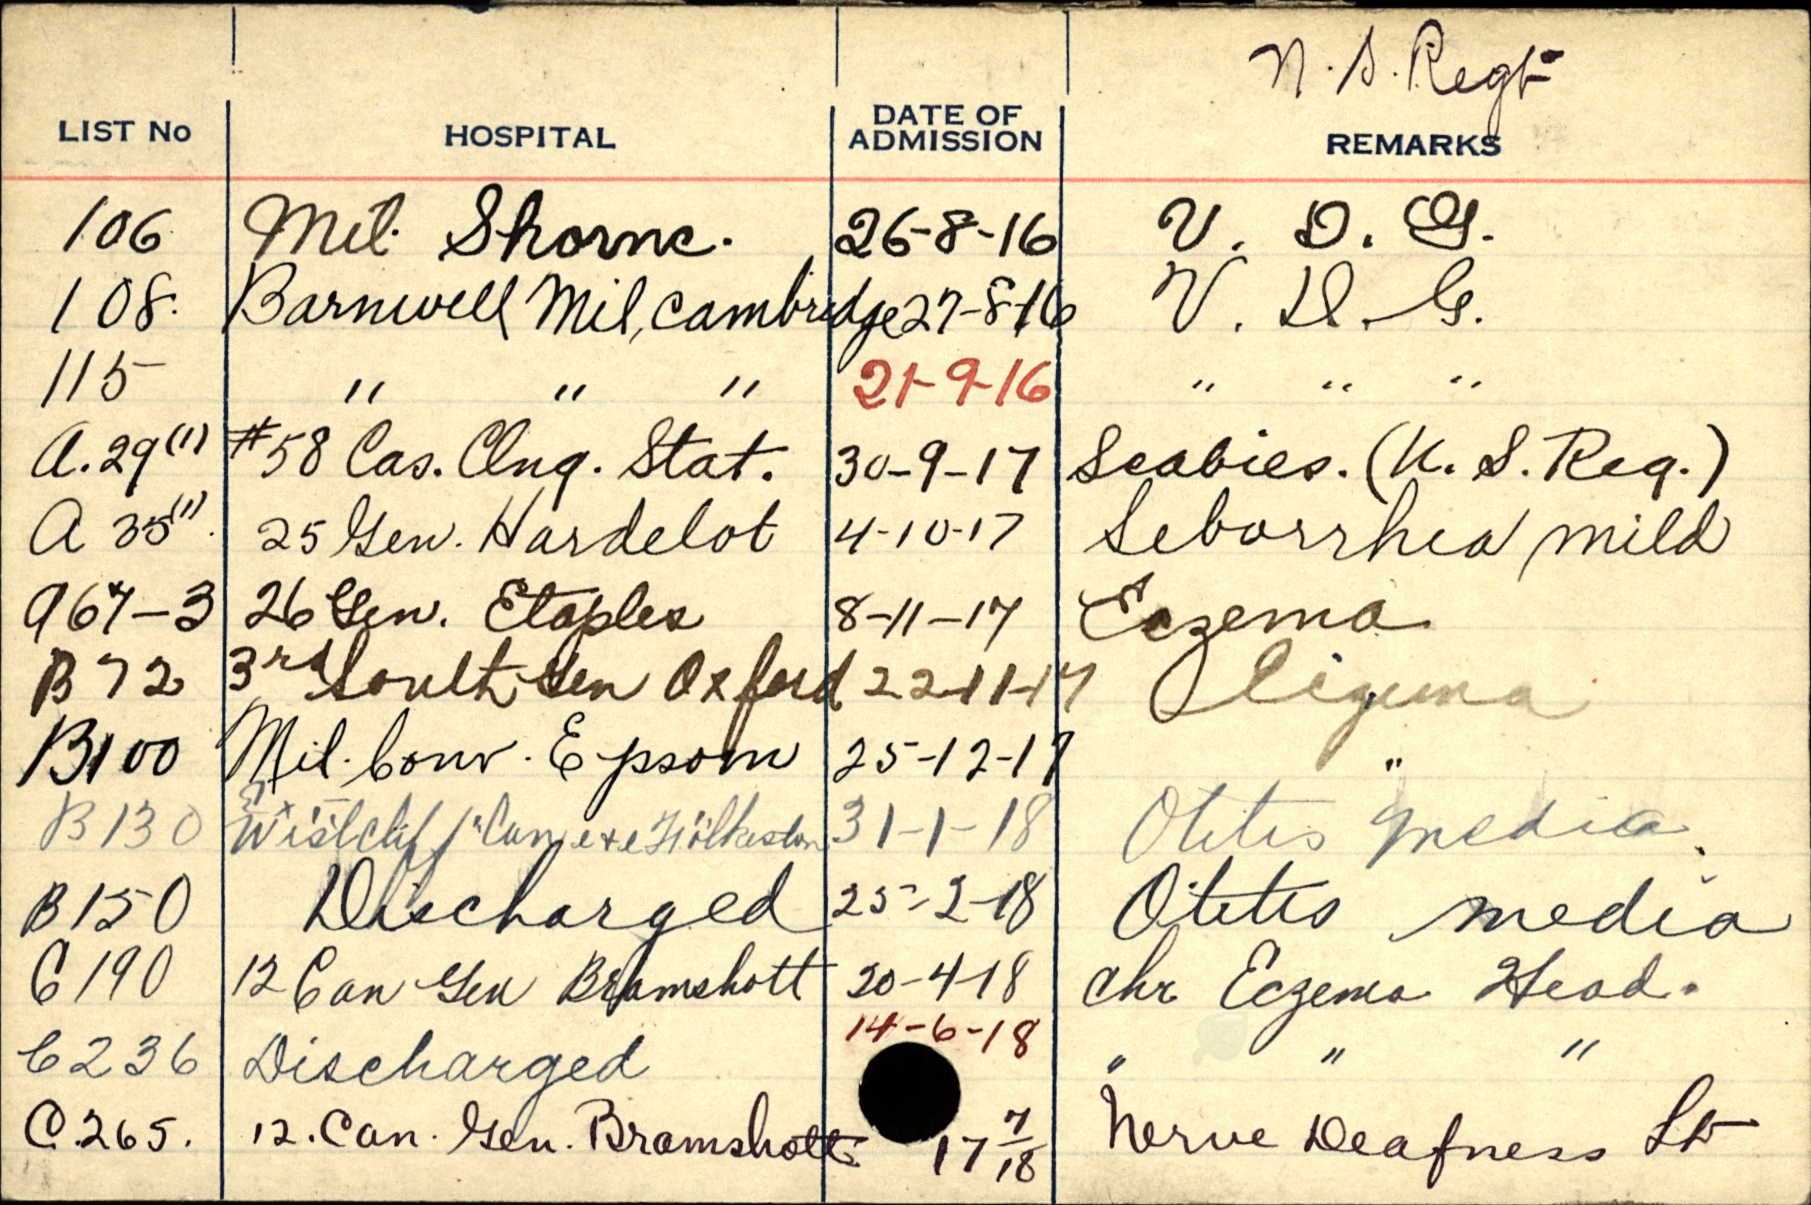 N. S. Regt
LIST No HOSPITAL DATE OF ADMISSION REMARKS
106 Mil. Shorne. 26-8-16 V. D. G.
108. Barnwell Mil, Cambridge 27-8-16 V. D. G.
115 " " " 21-9-16 " " "
A.29(1) #58 Cas. Clng. Stat. 30-9-17 Scabies. (N. S. Reg.)
A 35(1). 25 Gen. Hardelot 4-10-17 Seborrhea mild
A67-3 26 Gen. Etaples 8-11-17 Eczema
B 72 3rd South Gen Oxford 22-11-17
B100 Mil. Conv. Epsom 25-12-17 "
B130 Westcliff Can e+e Folkeston 31-1-18 Otitis Media.
B150 Discharged 25-2-18 Otitis media
C190 12 Can Gen Bramshott 20-4-18 Chr Eczema Head.
C236 Discharged 14-6-18 " " "
C.265. 12. Can. Gen. Bramshott 17 7/18 Nerve Deafness Lt